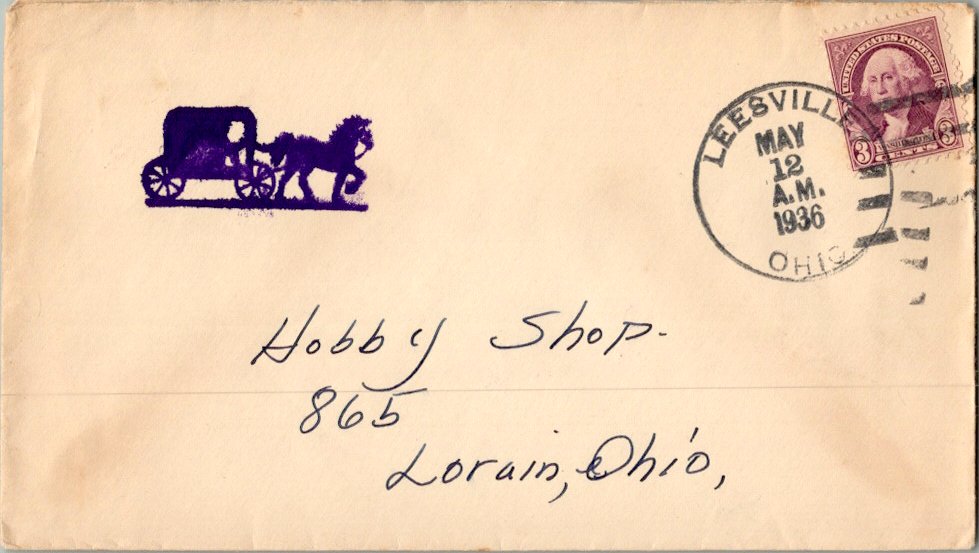 UNITED STATES POSTAGE
3 3
CENTS
LEESVILLE
MAY
12
A.M.
1936
OHIO
Hobby Shop.
865
Lorain, Ohio,